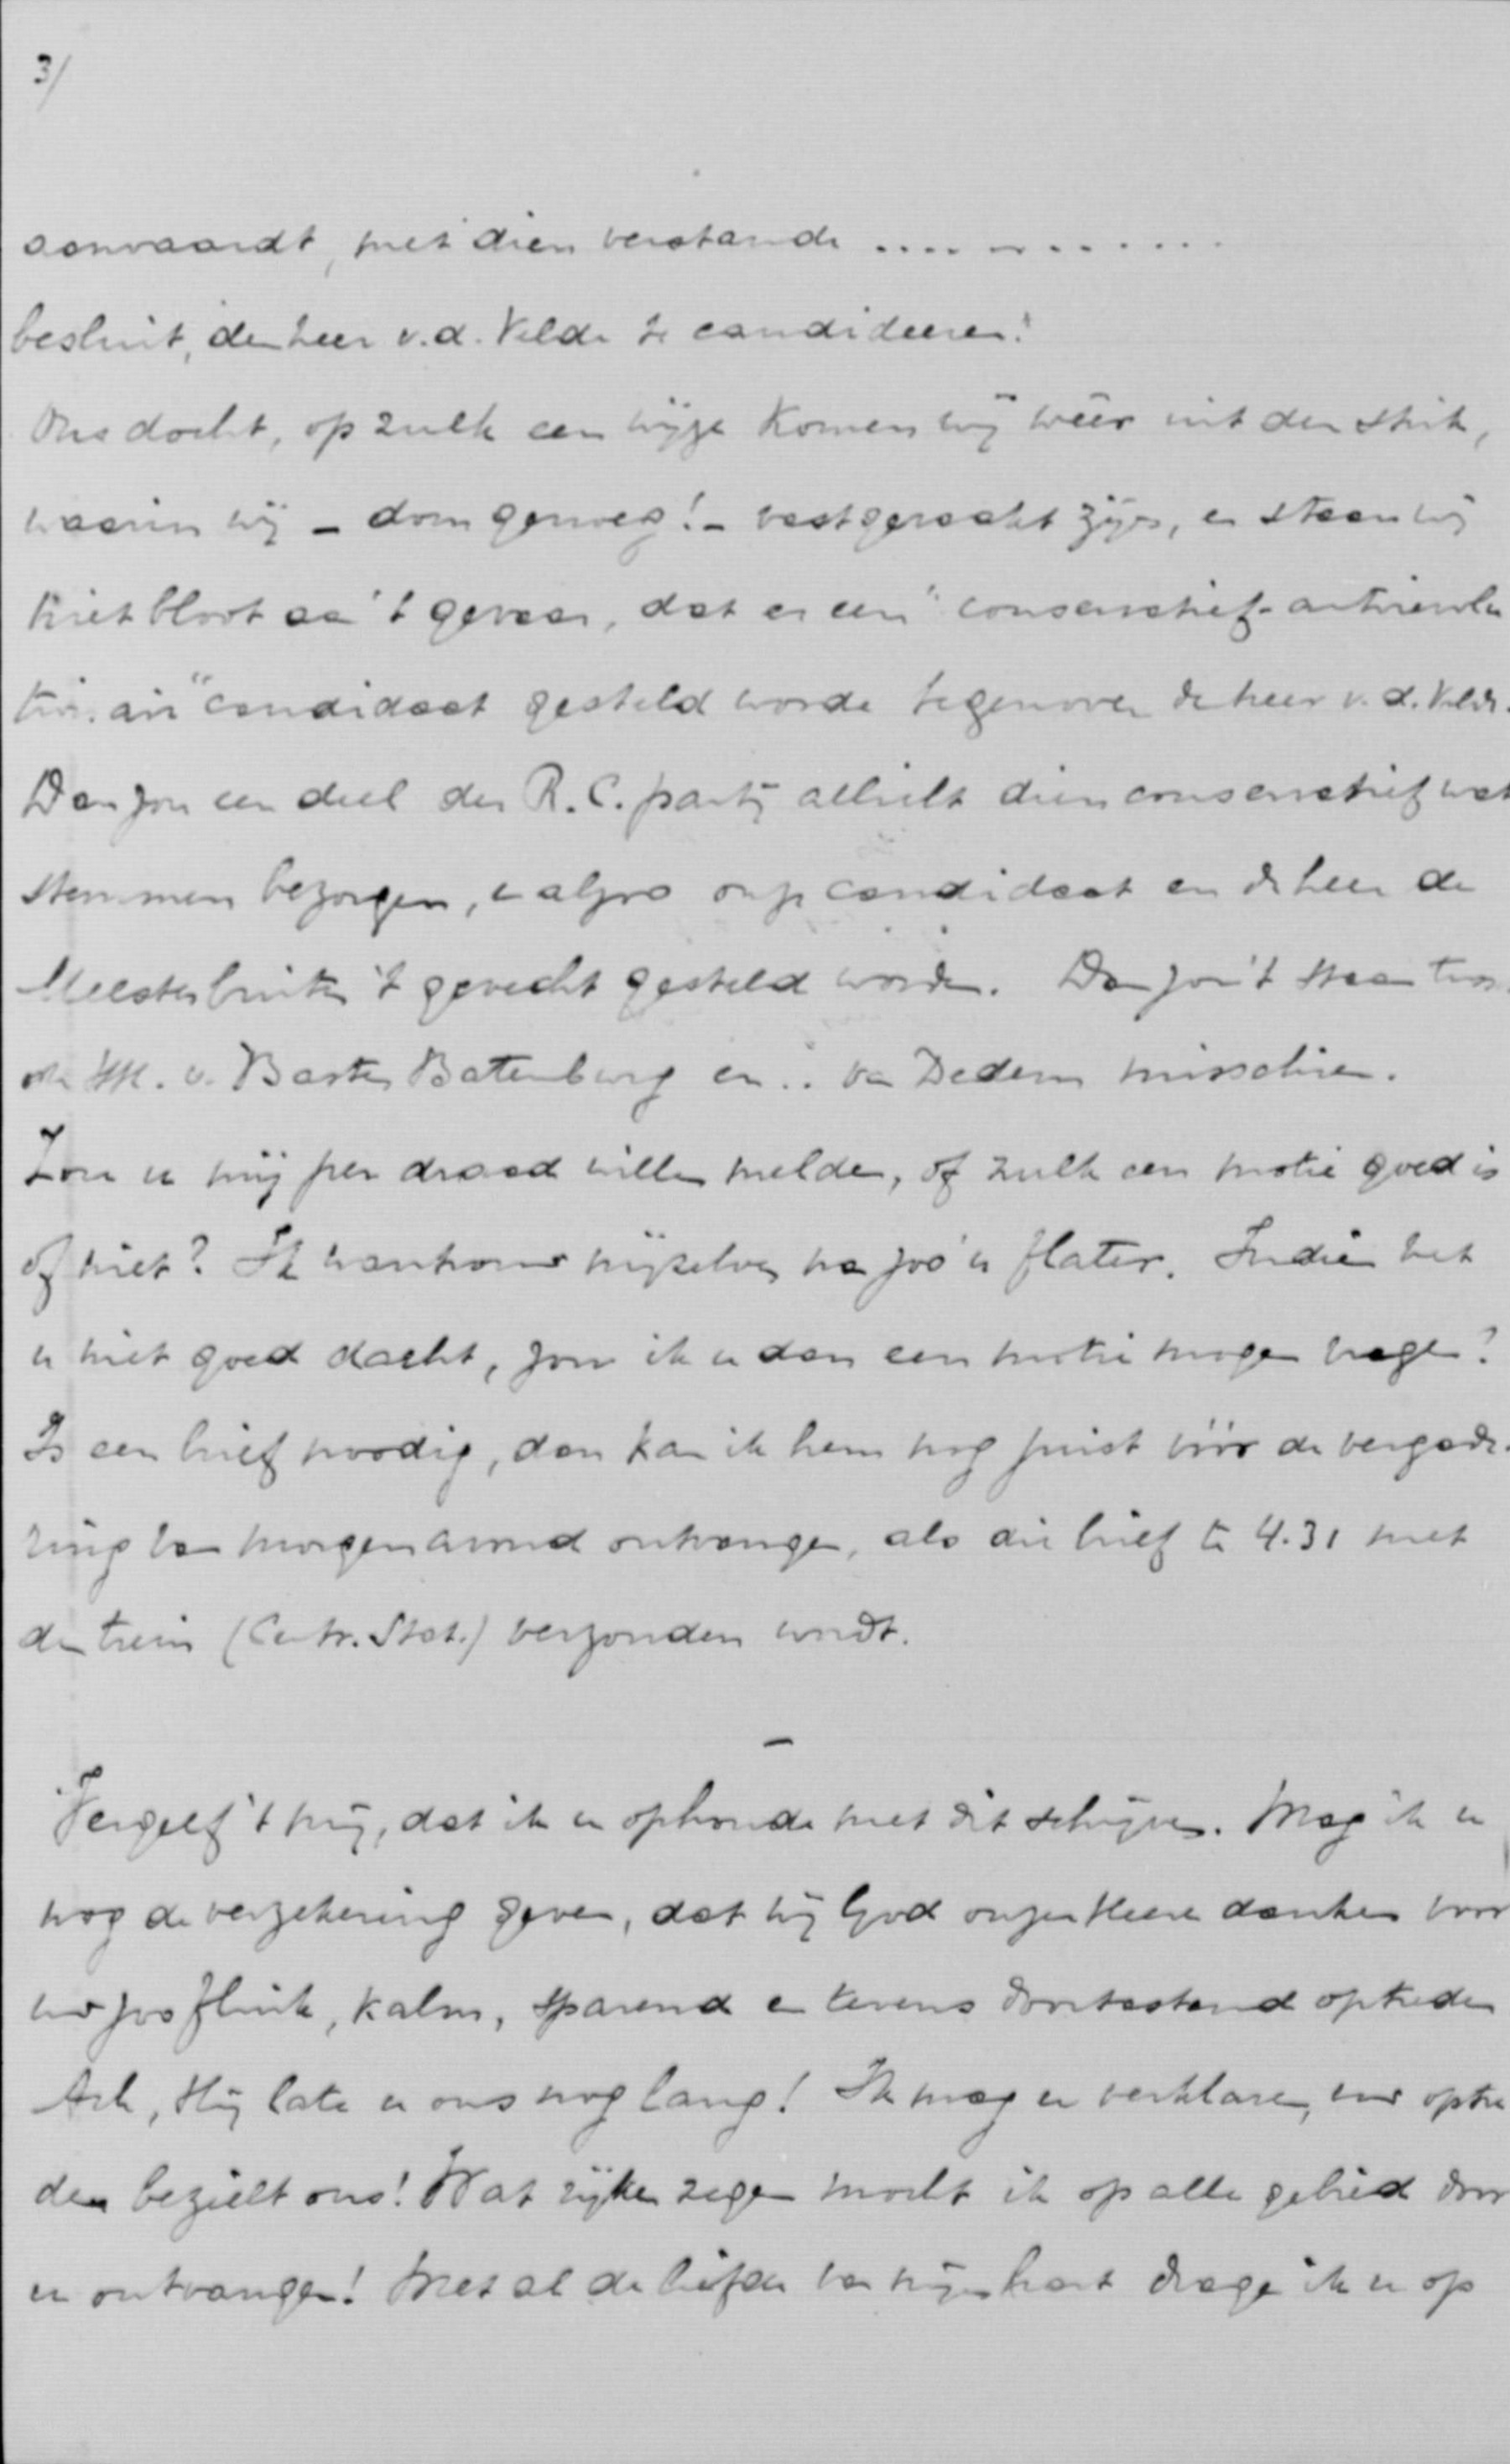 3/
aanvaardt, met dien verstande ............
besluit, den heer v.d. Velde te candideeren."
Ons docht, op zulk een wijze komen wij wéér uit den strik,
waarin wij – dom genoeg! – vastgeraakt zijn, en staan wij
niet bloot aa 't gevaar, dat er een "conservatief-antirevolu
tionair" candidaat gesteld worde tegenover de heer v.d. Velde.
Dan zou een deel der R.C. partij allicht dien conservatief wat
stemmen bezorgen, en alzoo onze candidaat en de heer de
Meester buiten 't gevecht gesteld worden. Dan zou 't staan
HH. v. Basten Batenburg en .. van Dedem misschien.
Zou u mij per draad willen melden, of zulk een motie goed is
of niet? Ik wantrouw mijzelven na zoo'n flater. Indien het
u niet goed dacht, zou ik u dan een motie mogen vragen?
Is een brief noodig, dan kan ik hem nog juist vóór de vergade-
ring van morgenavond ontvangen, als die brief te 4.31 met
den trein (Centr. Stat.) verzonden wordt.
–
Vergeef 't mij, dat ik u ophoude met dit schrijven. Mag ik u
nog de verzekering geven, dat wij God onzen Heere danken voor
uw zoo flink, kalm, sparend en tevens doortastend optreden
Ach, Hij late u ons nog lang! Ik mag u verklaren, uw optre
den bezielt ons! Wat rijken zegen mocht ik op alle gebied door
u ontvangen! Met al de liefde van mijn hart drage ik u op